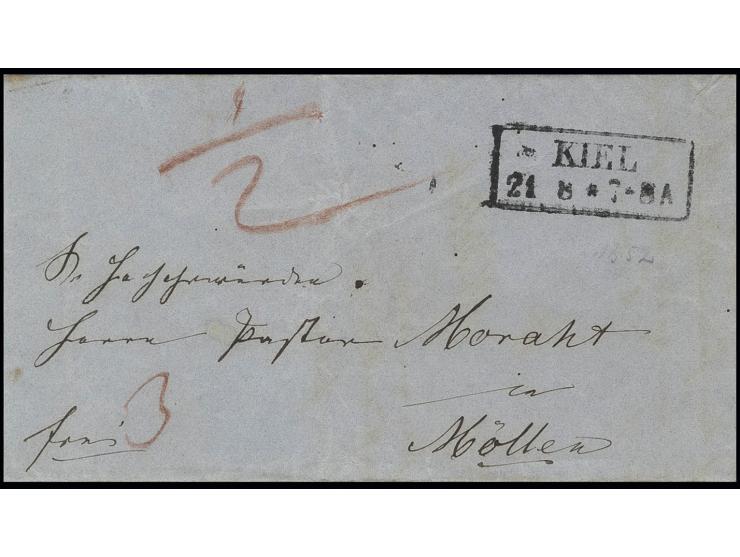 1/2
KIEL
21 8 * 7-8 A
1852
Sr Hochehrwürden.
Herrn Pastor Moraht
in
Möllen
frei 3